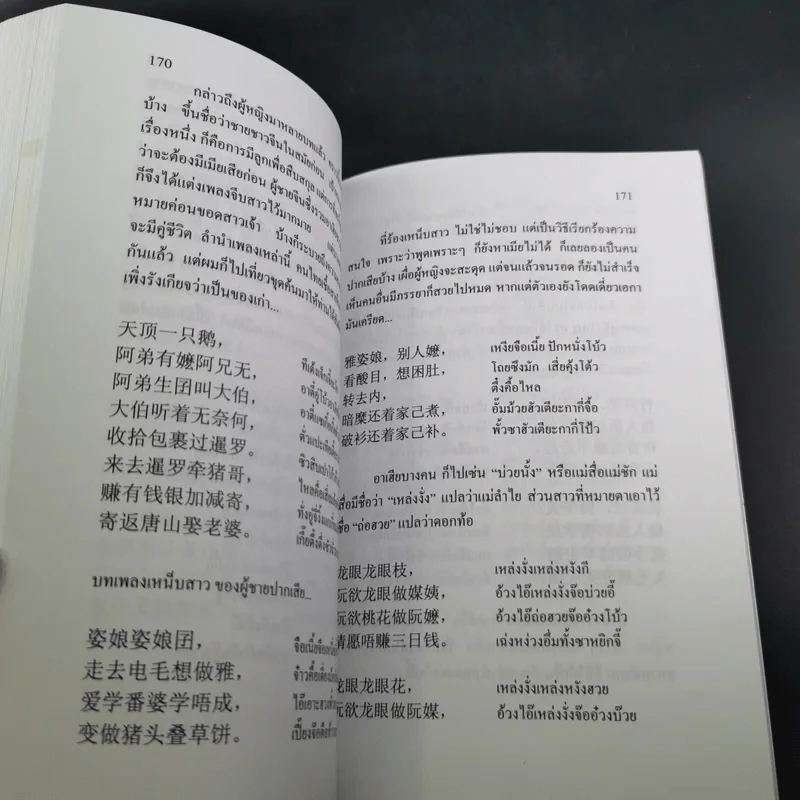 170
กล่าวถึงผู้หญิงมาหลายบทแล้ว
บ้าง ขึ้นชื่อว่าชายชาวจีนในสมัยก่อน
เรื่องหนึ่ง ก็คือการมีลูกเพื่อสืบสกุล
ว่าจะต้องมีเมียเสียก่อน ผู้ชายจีนซึ่ง
ก็จึงได้แต่งเพลงจีบสาวไว้มากมาย
หมายค่อนขอดสาวเจ้า บ้างก็ระบายถึง
จะมีคู่ชีวิต ลำนำเพลงเหล่านี้ คนไทยเชื้อ
กันแล้ว แต่ผมก็ไปเที่ยวขุดค้นมาให้ท่านได้
เพิ่งรังเกียจว่าเป็นของเก่า...
天顶一只鹅，
阿弟有嬷阿兄无，
阿弟生囝叫大伯，
大伯听着无奈何，
收拾包裹过暹罗。
来去暹罗牵猪哥，
赚有钱银加减寄，
寄返唐山娶老婆。
บทเพลงเหน็บสาว ของผู้ชายปากเสีย...
姿娘姿娘囝，
走去电毛想做雅，
爱学番婆学唔成，
变做猪头叠草饼。
171
ที่ร้องเหน็บสาว ไม่ใช่ไม่ชอบ แต่เป็นวิธีเรียกร้องความ
สนใจ เพราะว่าพูดเพราะๆ ก็ยังหาเมียไม่ได้ ก็เลยลองเป็นคน
ปากเสียบ้าง เผื่อผู้หญิงจะสะดุด แต่จนแล้วจนรอด ก็ยังไม่สำเร็จ
เห็นคนอื่นมีภรรยาก็สวยไปหมด หากแต่ตัวเองยังโดดเดี่ยวเอกา
มันเครียด...
雅姿娘，别人嬷， เหงียจือเนี้ย ปักหนั่งโบ้ว
看酸目，想困肚， โถยซึงมัก เสี่ยคุ้งโต้ว
转去内， ตึ๋งคื้อไหล
暗糜还着家己煮， อั๊มม้วยฮัวเตียะกากี่จื้อ
破衫还着家己补。 พั่วซาฮัวเตียะกากี่โป้ว
อาเฮียบางคน ก็ไปเซ่น “บ่วยนั้ง” หรือแม่สื่อแม่ชัก แม่
สื่อมีชื่อว่า “เหล่งงั่ง” แปลว่าแม่ลำไย ส่วนสาวที่หมายตาเอาไว้
ชื่อ “ถ่อฮวย” แปลว่าดอกท้อ
龙眼龙眼枝， เหล่งงั่งเหล่งหงังกี
阮欲龙眼做媒姨， อ้วงไอ๊เหล่งงั่งจ๊อบ่วยอี๊
阮欲桃花做阮嬷， อ้วงไอ๊ถ่อฮวยจ๊ออ๋วงโบ้ว
情愿唔赚三日钱。 เฉ่งหง่วงอื่มทั้งซาหยิกจี๊
龙眼龙眼花， เหล่งงั่งเหล่งหงังฮวย
阮欲龙眼做阮媒， อ้วงไอ๊เหล่งงั่งจ๊ออ๋วงบ๊วย